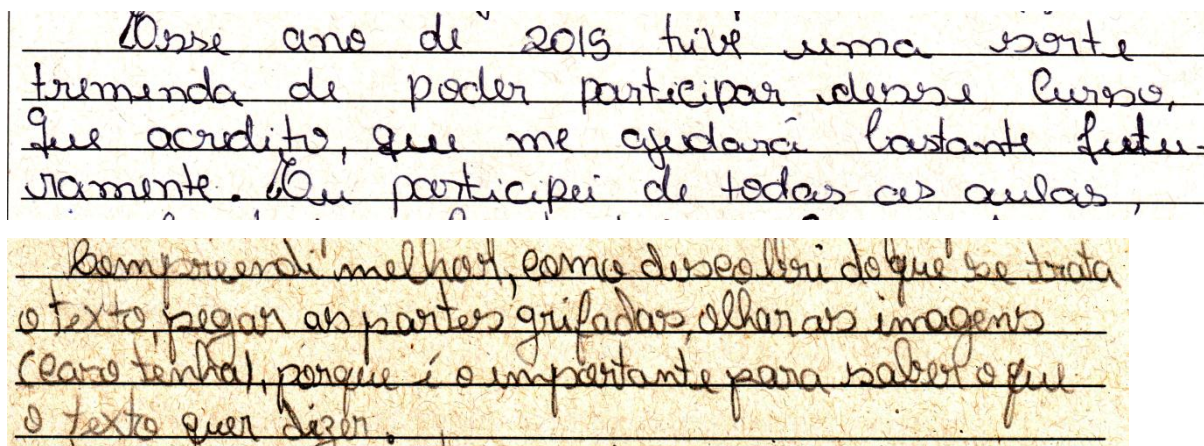 Esse ano de 2019 tive uma sorte
tremenda de poder participar desse curso,
que acredito, que me ajudará bastante futu-
ramente. Eu participei de todas as aulas,
Compreendi melhor, como descobri do que se trata
o texto, pegar as partes grifadas, olhar as imagens
(caso tenha), porque é o importante para saber o que
o texto quer dizer.